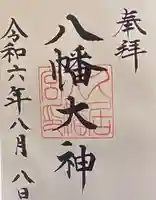 奉拝
八幡大神
令和六年八月八日